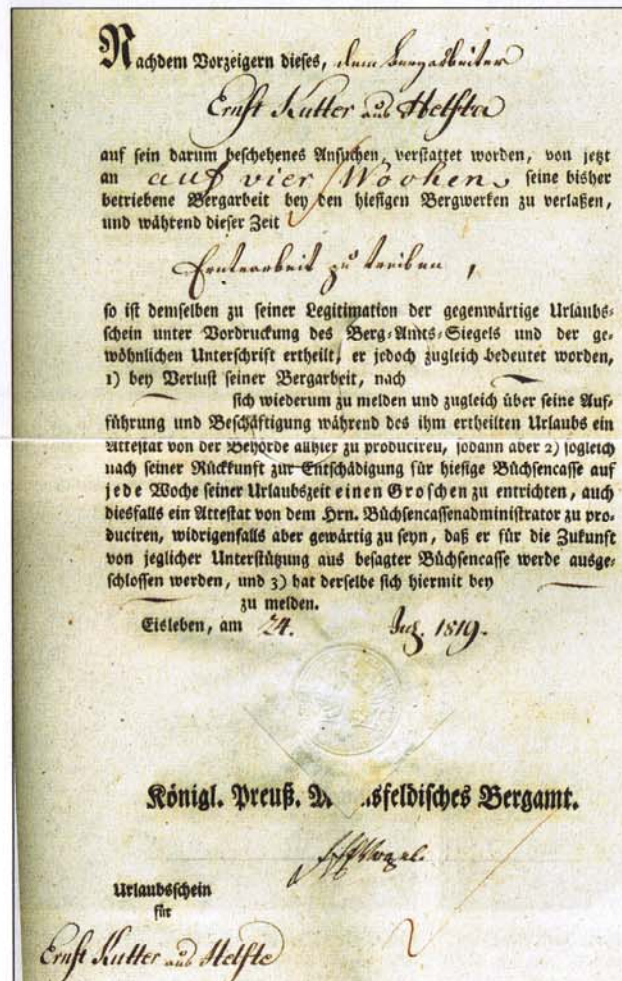 Nachdem Vorzeigern dieses, dem Bergarbeiter
Ernst Kutter aus Helfta
auf sein darum beschehenes Ansuchen, verstattet worden, von jetzt
an auf vier Wochen, seine bisher
betriebene Bergarbeit bey den hiesigen Bergwerken zu verlaßen,
und während dieser Zeit
Erntearbeit zu treiben,
so ist demselben zu seiner Legitimation der gegenwärtige Urlaubs-
schein unter Vordruckung des Berg-Amts-Siegels und der ge-
wöhnlichen Unterschrift ertheilt, er jedoch zugleich bedeutet worden,
1) bey Verlust seiner Bergarbeit, nach
sich wiederum zu melden und zugleich über seine Auf-
führung und Beschäftigung während des ihm ertheilten Urlaubs ein
Attestat von der Behörde allhier zu produciren, sodann aber 2) sogleich
nach seiner Rückkunft zur Entschädigung für hiesige Büchsencasse auf
jede Woche seiner Urlaubszeit einen Groschen zu entrichten, auch
diesfalls ein Attestat von dem Hrn. Büchsencassenadministrator zu pro-
duciren, widrigenfalls aber gewärtig zu seyn, daß er für die Zukunft
von jeglicher Unterstützung aus besagter Büchsencasse werde ausge-
schlossen werden, und 3) hat derselbe sich hiermit bey
zu melden.
Eisleben, am 24. 1819.
Königl. Preuß. M sfeldisches Bergamt.
Urlaubsschein
für
Ernst Kutter aus Helfte